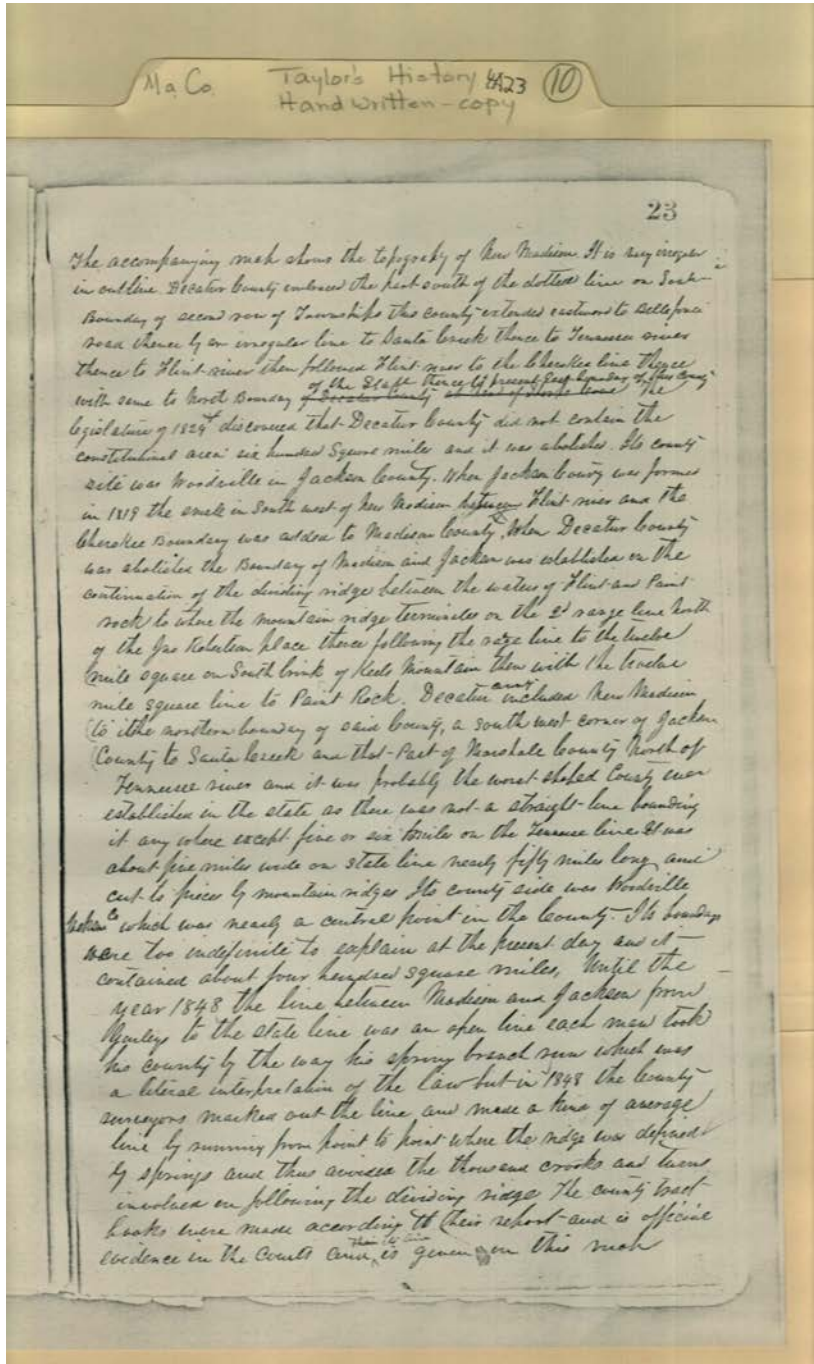 Ma. Co. Taylor's History 4A23 10
Handwritten - copy
23
The accompanying map shows the topography of New Madison. It is very irregular
in outline. Decatur County embraced the part south of the dotted line on South
Boundary of second row of Townships this county extended eastward to Bellefonte
road thence by an irregular line to Santa Creek thence to Tennessee river
thence to Flint river then followed Flint river to the Cherokee line thence
of the State thence to present East boundary of this County
with same to North Boundary of Decatur County The
legislature of 1824 discovered that Decatur County did not contain the
constitutional area six hundred Square miles and it was abolished. Its county
site was Woodville in Jackson County. When Jackson County was formed
in 1819 the small in South west of New Madison between Flint river and the
Cherokee Boundary was added to Madison County. When Decatur County
was abolished the Boundary of Madison and Jackson was established on the
continuation of the dividing ridge between the waters of Flint and Paint
rock to where the mountain ridge terminates on the 2d range line North
of the Jas Robertson place thence following the range line to the twelve
mile square on South brink of Keels Mountain then with the twelve
mile square line to Paint Rock. Decatur County included New Madison
to the northern boundary of said County, a South west corner of Jackson
County to Santa Creek and that Part of Marshall County North of
Tennessee river and it was probably the worst shaped County ever
established in the state as there was not a straight line bounding
it any where except five or six miles on the Tennessee line. It was
about five miles wide on state line nearly fifty miles long and
cut to pieces by mountain ridges Its county side was Woodville
Jackson Co which was nearly a central point in the County. Its boundarys
were too indefinite to explain at the present day and it
contained about four hundred square miles, Until the
year 1848 the line between Madison and Jackson from
Gurleys to the state line was an open line each man took
his county by the way his spring branch run which was
a literal interpretation of the law but in 1848 the County
surveyors marked out the line and made a kind of average
line by running from point to point where the ridge was defined
by springs and thus avoided the thousand crooks and turns
involved on following the dividing ridge The county tract
books were made according to their report and is official
evidence in the Courts and is given on this map